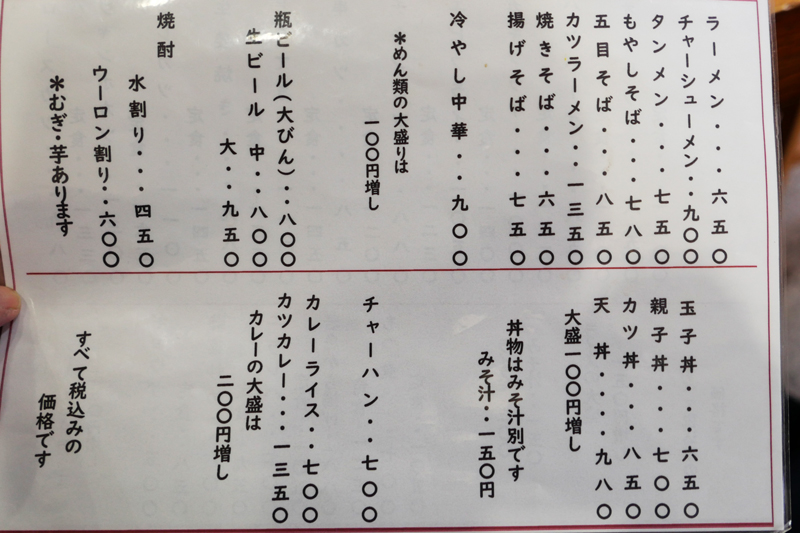 ラーメン・・・六五〇
チャーシューメン・・九〇〇
タンメン・・・七五〇
もやしそば・・・七八〇
五目そば・・・八五〇
カツラーメン・・一三五〇
焼きそば・・・六五〇
揚げそば・・・七五〇
冷やし中華・・九〇〇
＊めん類の大盛りは
一〇〇円増し
瓶ビール(大びん)・・八〇〇
生ビール 中・・八〇〇
大・・九五〇
焼酎
水割り・・・四五〇
ウーロン割り・・六〇〇
＊むぎ・芋あります
玉子丼・・・六五〇
親子丼・・・七〇〇
カツ丼・・・・八五〇
天丼・・・・九八〇
大盛一〇〇円増し
丼物はみそ汁別です
みそ汁・・一五〇円
チャーハン・・七〇〇
カレーライス・・七〇〇
カツカレー・・・一三五〇
カレーの大盛は
二〇〇円増し
すべて税込みの
価格です